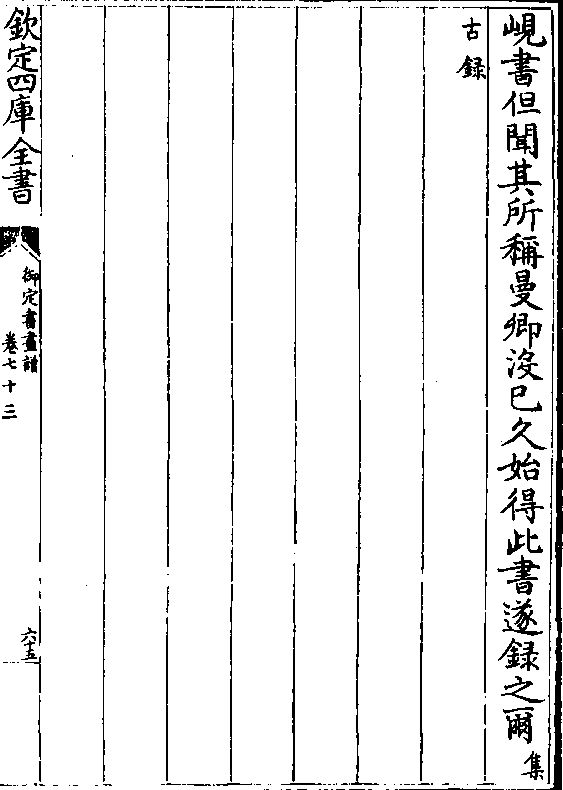 峴書但聞其所稱曼卿沒已久始得此書遂録之爾集
古録
欽定四庫全書
御定書畫譜
卷七十三
六十五